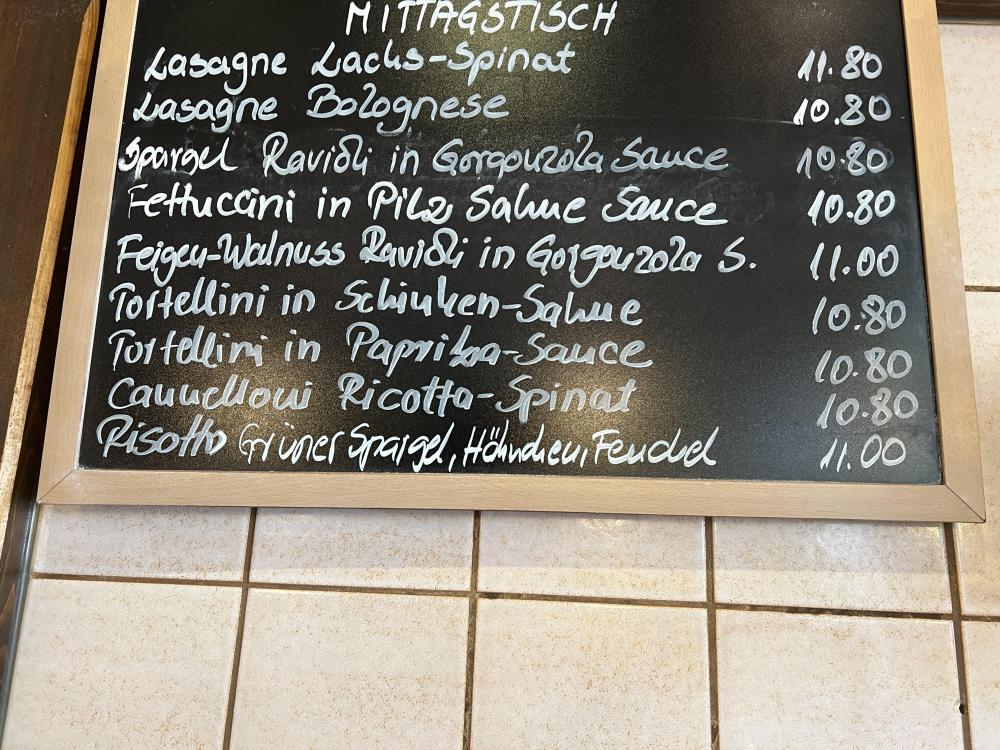 MITTAGSTISCH
Lasagne Lachs-Spinat 11.80
Lasagne Bolognese 10.80
Spargel Ravioli in Gorgonzola Sauce 10.80
Fettuccini in Pilz Sahne Sauce 10.80
Feigen-Walnuss Ravioli in Gorgonzola S. 11.00
Tortellini in Schinken-Sahne 10.80
Tortellini in Paprika-Sauce 10.80
Cannelloni Ricotta-Spinat 10.80
Risotto Grüner Spargel, Hähnchen, Fenchel 11.00